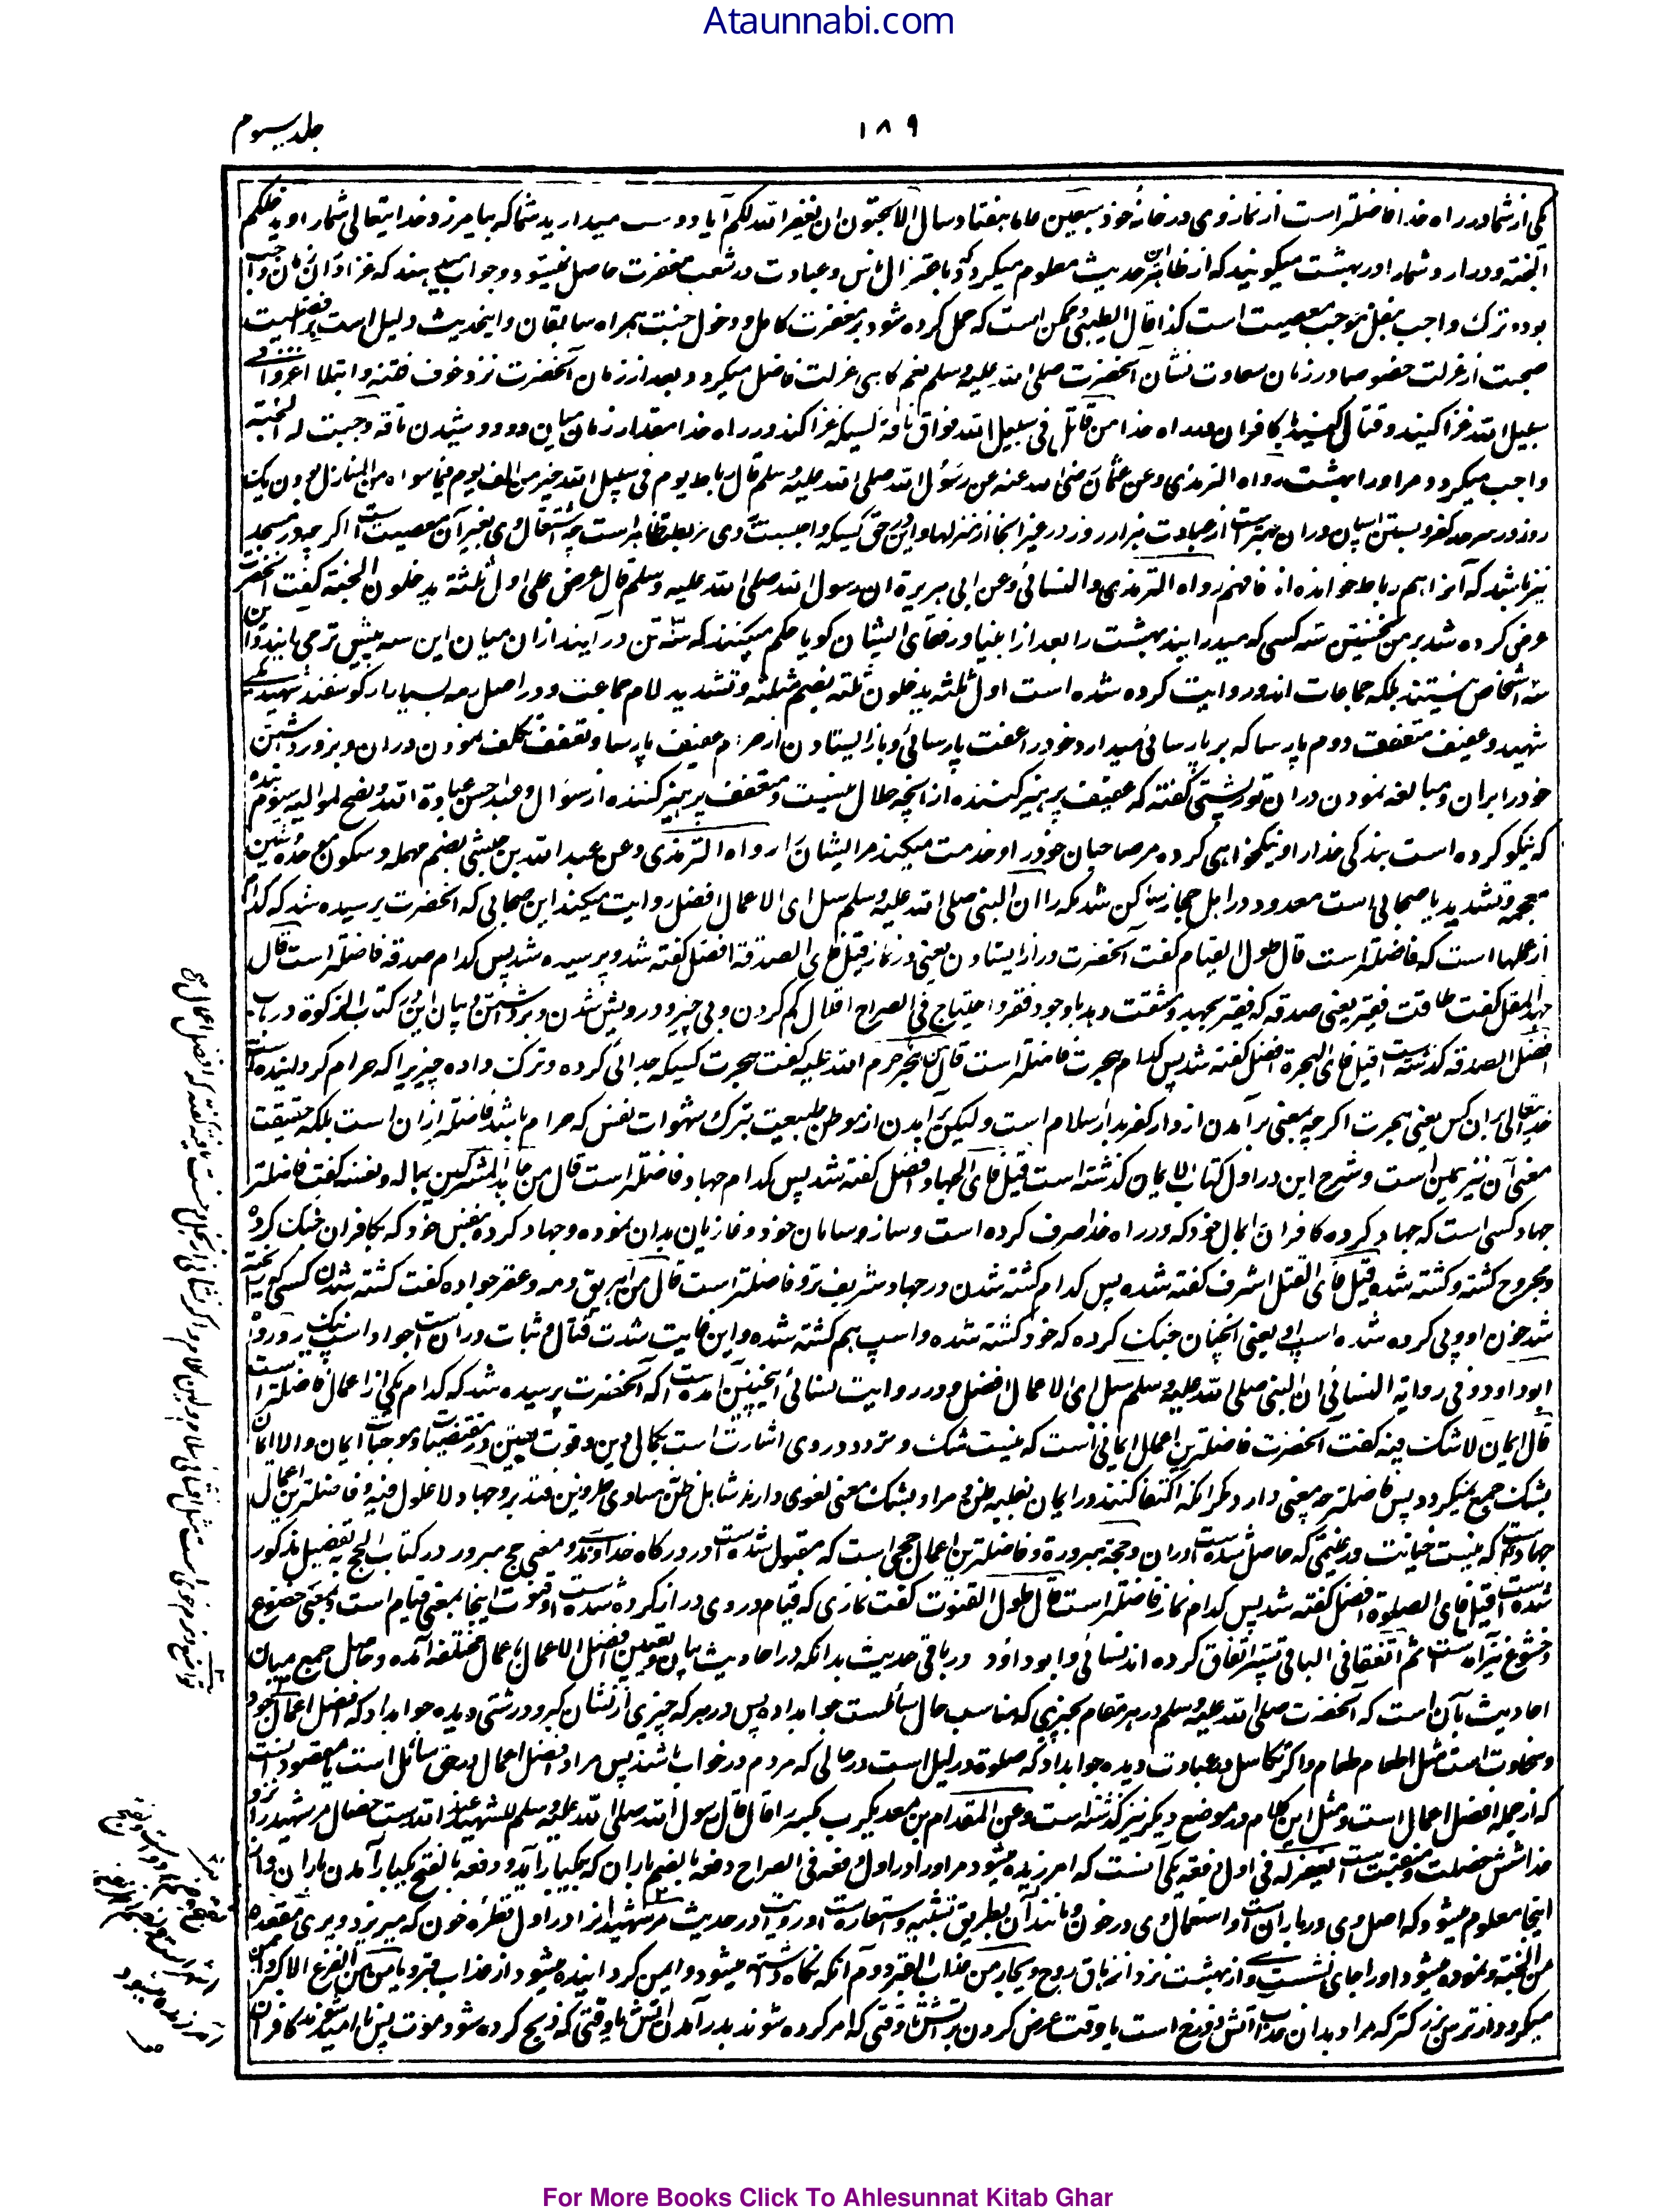 Ataunnabi.com
جلد سیوم
۱۸۹
یکی از شما در راه خدا فاضلتر است از نماز وی در خانهٔ خود سبعین عاما هفتاد سال الا تحبون ان یغفر الله لکم آیا دوست میدارید شما که بیامرزد خدایتعالی شمار او یدخلکم
الجنة و درارد شمار ا در بهشت میگویند که از ظاهر این حدیث معلوم میگردد که باعتزال ناس و عبادت در شعب مغفرت حاصل نمیشود و جواب میدهند که غزا در آن زمان واجب
بوده ترک واجب بنفل موجب معصیت است کذا قال الطیبی و ممکن است که حمل کرده شود بر مغفرت کامل و دخول جنت همراه سابقان و اینحدیث دلیل است بر فضیلت
صحبت از عزلت خصوصا در زمان سعادت نشان آنحضرت صلی الله علیه وسلم نعم گاهی عزلت فاضل میگردد بعد از زمان آنحضرت نزد خوف فتنه و ابتلا اغزوا فی
سبیل الله غزا کنید و قتال کنید با کافران در راه خدا من قاتل فی سبیل الله فواق ناقة کسیکه غزا کند در راه خدا مقدار زمان میان دو دوشیدن ناقه وجبت له الجنة
واجب میگردد مر او را بهشت رواه الترمذی وعن عثمان رضی الله عنه عن رسول الله صلی الله علیه وسلم قال رباط یوم فی سبیل الله خیر من الف یوم فیما سواه من المنازل بودن یک
روز در سرحد کفر و بستن اسپان دران بهتر است از عبادت هزار روز در غیر آنجا از منزلها و این در حق کسیکه واجبست وی بر بطظاهر است چه اشتغال وی بغیر آن معصیت است اگر چه در مسجد
نیز باشد که آنرا هم رباط خوانده اند فافهم رواه الترمذی والنسائی وعن ابی هریرة ان رسول الله صلی الله علیه وسلم قال عرض علی اول ثلثة یدخلون الجنة گفت آنحضرت
عرض کرده شد بر من نخستین سه کسی که میدرایند بهشت را بعد از انبیا و رفقای ایشان گویا حکم میکنند که سه تن در آیند ازان میان این سه پیش تر می آیند و این
سه اشخاص نیستند بلکه جماعات اند و روایت کرده شده است اول ثلثة یدخلون ثلة بضم مثلثه و تشدید لام جماعت و در اصل رمه بسیار از گوسفند شهید یکی
شهید و عفیف متعفف دوم پارسا که بر پارسائی میدارد خود را عفت پارسائی و باز ایستادن از حرام عفیف پارسا و تعفف تکلف نمودن دران و بزور داشتن
خود را بران و مبالغه نمودن دران تورپشتی گفته که عفیف پرهیز کننده از آنچه حلال نیست و متعفف پرهیز کننده از سوال و عبد احسن عبادة الله و نصح لموالیه سیوم بنده
که نیکو کرده است بندگی خدار او نیکخواهی کرده مر صاحبان خود را و خدمت میکند مر ایشان را رواه الترمذی وعن عبد الله بن حبشی بضم مهمله و سکون موحده و شین
معجمه و تشدید یا صحابی است معدود در اهل حجاز ساکن شد مکه را ان النبی صلی الله علیه وسلم سئل ای الاعمال افضل روایت میکند این صحابی که آنحضرت پرسیده شد که کدام
از عملها است که فاضلتر است قال طول القیام گفت آنحضرت دراز ایستادن یعنی در نماز قیل فای الصدقة افضل گفته شد و پرسیده شد پس کدام صدقه فاضلتر است قال
جهد المقل گفت طاقت فقیر یعنی صدقه که فقیر بجهد و مشقت دهد باوجود فقر و احتیاج فی الصراح اقلال کم کردن و بی چیز و درویش شدن و برداشتن و بیان این در کتاب الزکوة در باب
افضل الصدقه گذشته است قیل فای الهجرة افضل گفته شد پس کدام هجرت فاضلتر است قال من هجر ما حرم الله علیه گفت هجرت کسیکه جدائی کرده و ترک داده چیزیرا که حرام گردانیده است
خدایتعالی بران کس یعنی هجرت اگرچه بمعنی برآمدن از دار کفر بدار اسلام است ولیکن برآمدن از موطن طبیعت بترک شهوات نفس که حرام باشد فاضلتر ازان است بلکه حقیقت
معنی آن نیز همین است و شرح این در اول کتاب الایمان گذشته است قیل فای الجهاد افضل گفته شد پس کدام جهاد فاضلتر است قال من جاهد المشرکین بماله و نفسه گفت فاضلتر
جهاد کسی است که جهاد کرده کافران را بمال خود که در راه خدا صرف کرده است و ساز و سامان خود و غازیان بدان نموده و جهاد کرده بنفس خود که با کافران جنگ کرده
و مجروح گشته و کشته شده قیل فای القتل اشرف گفته شده پس کدام کشته شدن در جهاد شریف تر و فاضلتر است قال من اهریق دمه و عقر جواده گفت کشته شدن کسی که ریخته
شد خون او و پی کرده شده اسپ او یعنی آنچنان جنگ کرده که خود کشته شده و اسپ هم کشته شده و این غایت شدت قتال و ثبات دران است جواد اسپ نیک رو رواه
ابو داود و فی روایة النسائی ان النبی صلی الله علیه وسلم سئل ای الاعمال افضل و در روایت نسائی اینچنین آمده است که آنحضرت پرسیده شد که کدام یکی از اعمال فاضلتر است
قال ایمان لا شک فیه گفت آنحضرت فاضلترین اعمال ایمانی است که نیست شک و تردد در وی اشارت است بکمال دین و قوت یقین در مقتضیات و موجبات ایمان و الا ایمان
بشک جمع نمیگردد پس فاضلتر چه معنی دارد مگر آنکه اکتفا کنند در ایمان بغلبه ظن و مراد بشک معنی لغوی دارند شامل ظن و مساوی طرفین فتدبر و جهاد لا غلول فیه و فاضلترین اعمال
جهادیست که نیست خیانت در غنیمتی که حاصل شده است دران و حجة مبرورة و فاضلترین اعمال حجی است که مقبول شده است در درگاه خداوند و معنی حج مبرور در کتاب الحج به تفصیل مذکور
شده است قیل فای الصلوة افضل گفته شد پس کدام نماز فاضلتر است قال طول القنوت گفت نمازی که قیام در وی دراز کرده شده است و قنوت اینجا بمعنی قیام است و بمعنی خضوع
و خشوع نیز آمده است ثم اتفقا فی الباقی پستر اتفاق کرده اند نسائی و ابو داؤد در باقی حدیث بدانکه در احادیث بیان و تعیین افضل الاعمال اعمال مختلفه آمده و حاصل جمع میان
احادیث بآن است که آنحضرت صلی الله علیه وسلم در هر مقام بچیزی که مناسب حال سائلست جواب داده پس در هر که چیزی از نشان کبر و درشتی دیده جواب داد که افضل اعمال جود
و سخاوت است مثل اطعام طعام و اگر تکاسل در عبادت دیده جواب داد که صلوة در لیل است در حالی که مردم در خواب باشند پس مراد افضل اعمال در حق سائل است یا مقصود آنست
که از جمله افضل اعمال است و مثل این کلام در موضع دیگر نیز گذشته است وعن المقدام بن معدیکرب بکسر را قال قال رسول الله صلی الله علیه وسلم للشهید عند الله ست خصال مر شهید را نزد
خدا شش خصلت و منقبت است یغفر له فی اول دفعة یکی آنست که امرزیده میشود مر او را در اول دفعه فی الصراح دفعه بالضم باران که بیکبار آید و دفعه بالفتح یکبار آمدن باران و از
اینجا معلوم میشود که اصل وی در باران است و استعمال وی در خون و مانند آن بطریق تشبیه و استعاره است
من الجنة و نموده میشود او را جای نشست وی از بهشت نزد انزهاق روح و یجار من عذاب القبر دوم آنکه نگاهداشته میشود و ایمن گردانیده میشود از عذاب قبر و یامن من الفزع الاکبر و ایمن
میگردد از ترس بزرگتر که مراد بدان عذاب آتش دوزخ است یا وقت عرض کردن بر آتش یا وقتی که امر کرده شوند بدرآمدن آتش یا وقتی که ذبح کرده شود موت
For More Books Click To Ahlesunnat Kitab Ghar